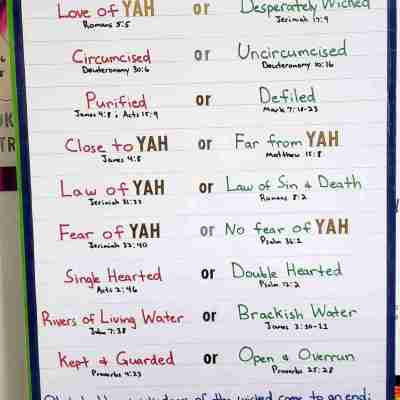 Love of YAH or Desperately Wicked
Romans 5:5 Jerimiah 17:9
Circumcised or Uncircumcised
Deuteronomy 30:6 Deuteronomy 10:16
Purified or Defiled
James 4:8 ; Acts 15:9 Mark 7:18-23
Close to YAH or Far from YAH
James 4:8 Matthew 15:8
Law of YAH or Law of Sin & Death
Jerimiah 31:33 Romans 8:2
Fear of YAH or No fear of YAH
Jerimiah 32:40 Psalm 36:1
Single Hearted or Double Hearted
Acts 2:46 Psalm 12:2
Rivers of Living Water or Brackish Water
John 7:38 James 3:10-11
Kept & Guarded or Open & Overrun
Proverbs 4:23 Proverbs 25:28
of the wicked come to an end;